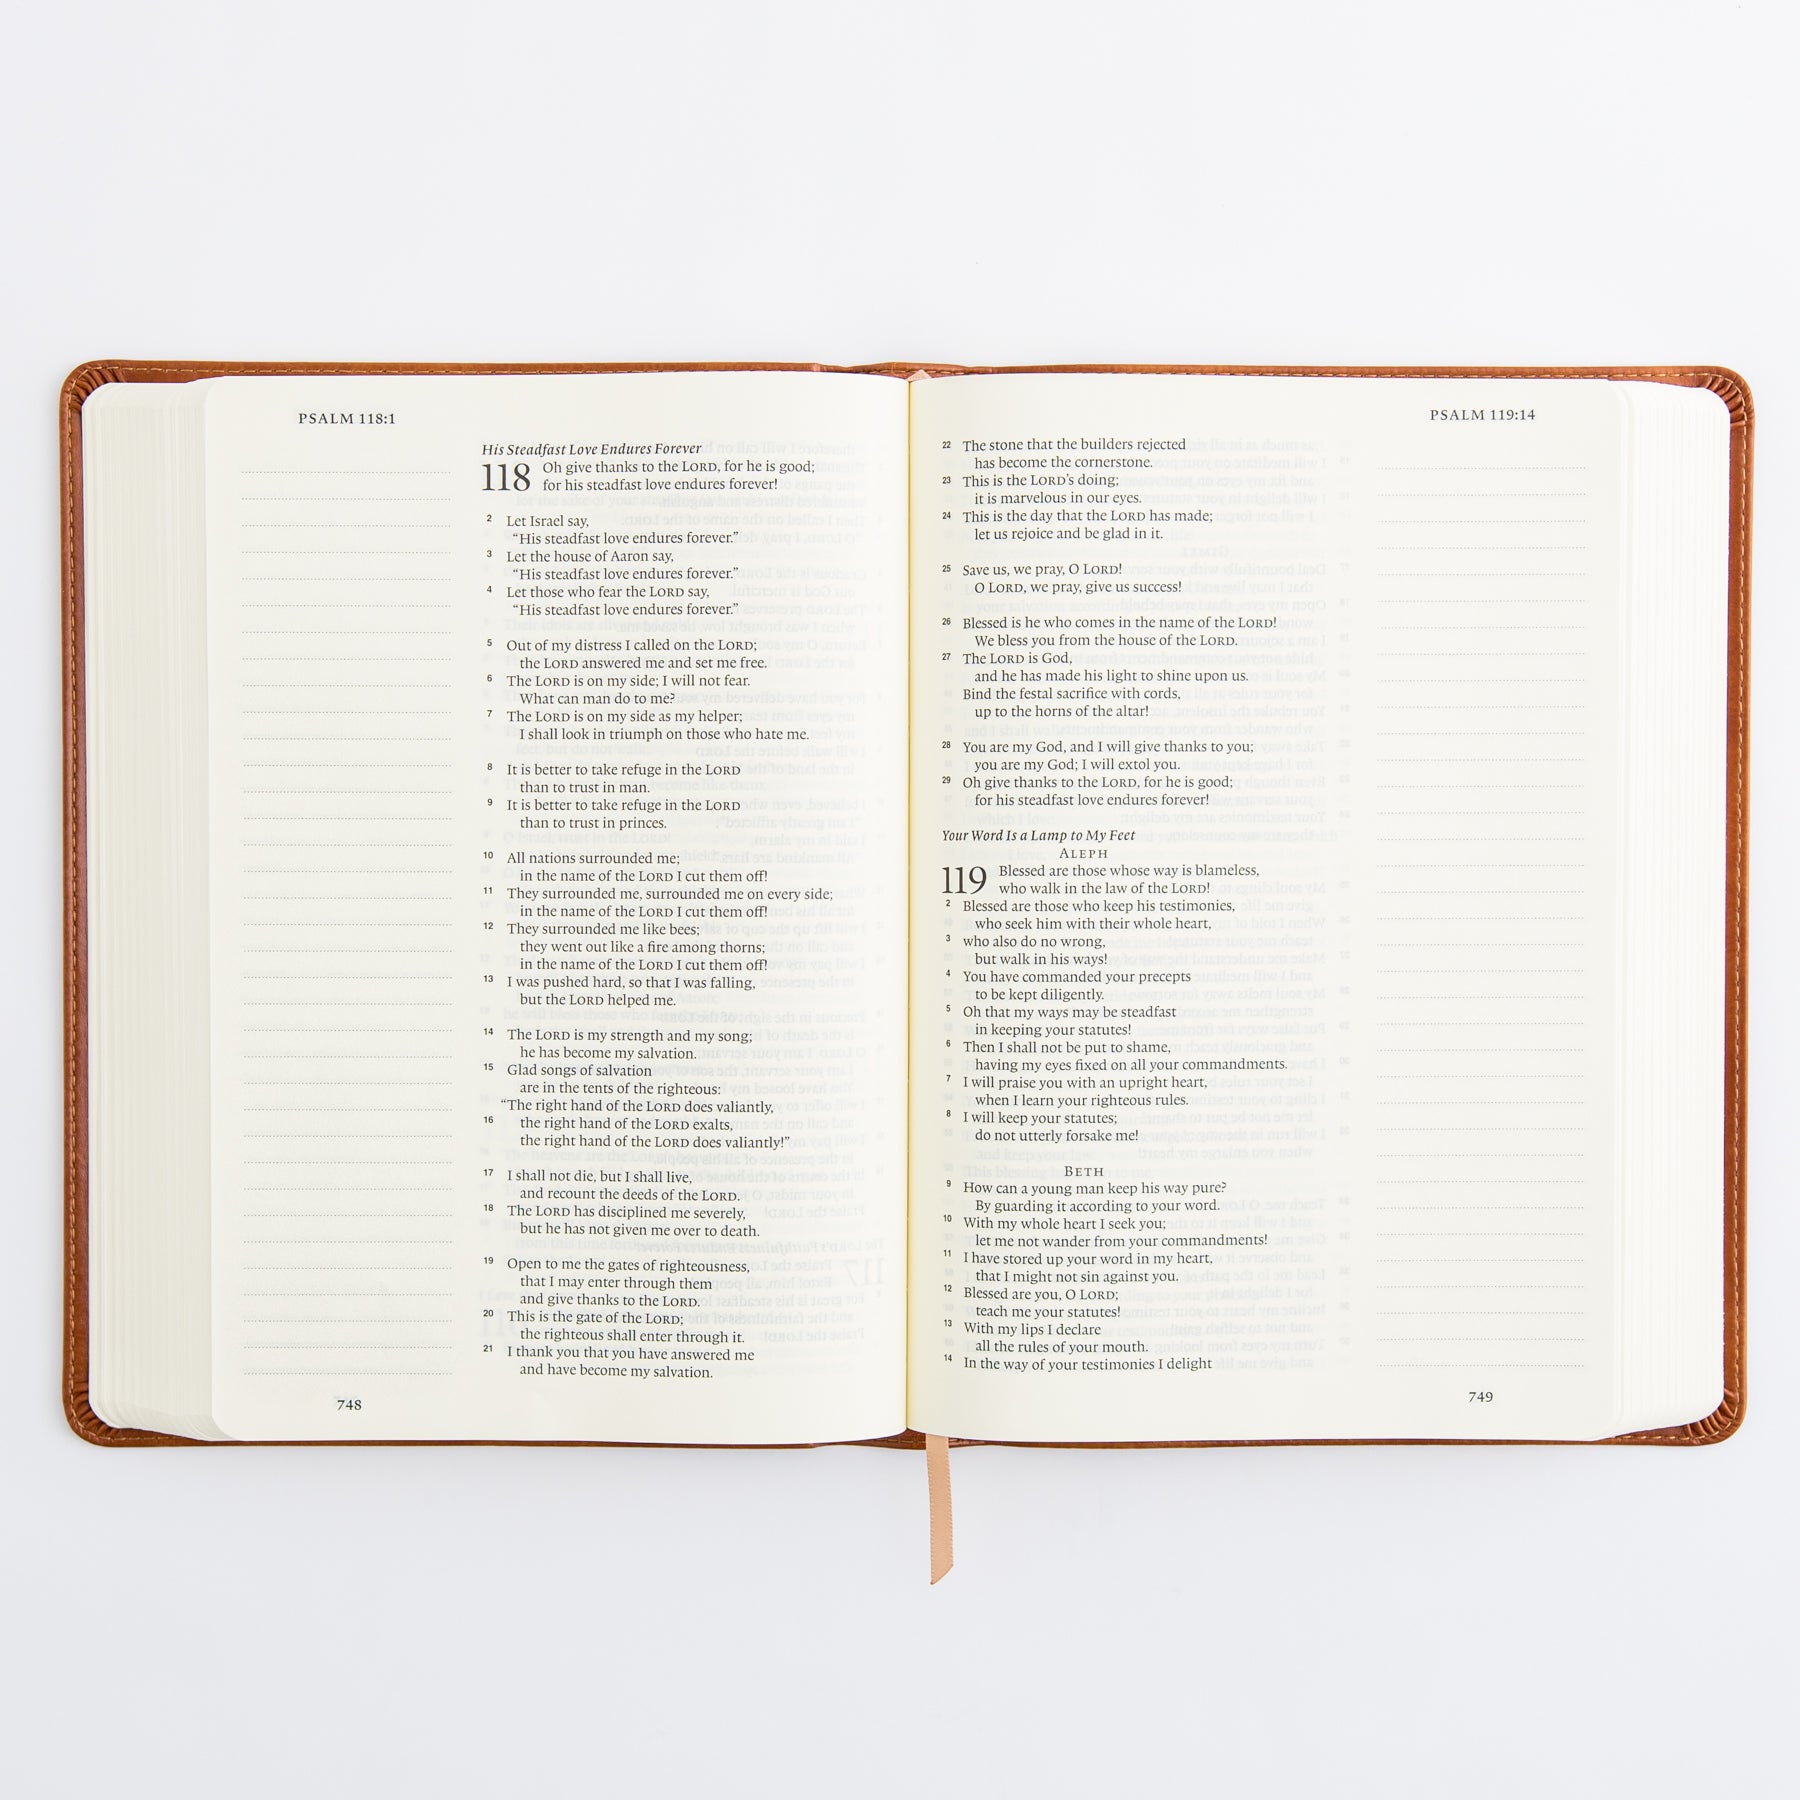 PSALM 118:1
His Steadfast Love Endures Forever
118 Oh give thanks to the LORD, for he is good;
for his steadfast love endures forever!
2 Let Israel say,
“His steadfast love endures forever.”
3 Let the house of Aaron say,
“His steadfast love endures forever.”
4 Let those who fear the LORD say,
“His steadfast love endures forever.”
5 Out of my distress I called on the LORD;
the LORD answered me and set me free.
6 The LORD is on my side; I will not fear.
What can man do to me?
7 The LORD is on my side as my helper;
I shall look in triumph on those who hate me.
8 It is better to take refuge in the LORD
than to trust in man.
9 It is better to take refuge in the LORD
than to trust in princes.
10 All nations surrounded me;
in the name of the LORD I cut them off!
11 They surrounded me, surrounded me on every side;
in the name of the LORD I cut them off!
12 They surrounded me like bees;
they went out like a fire among thorns;
in the name of the LORD I cut them off!
13 I was pushed hard, so that I was falling,
but the LORD helped me.
14 The LORD is my strength and my song;
he has become my salvation.
15 Glad songs of salvation
are in the tents of the righteous:
“The right hand of the LORD does valiantly,
16 the right hand of the LORD exalts,
the right hand of the LORD does valiantly!”
17 I shall not die, but I shall live,
and recount the deeds of the LORD.
18 The LORD has disciplined me severely,
but he has not given me over to death.
19 Open to me the gates of righteousness,
that I may enter through them
and give thanks to the LORD.
20 This is the gate of the LORD;
the righteous shall enter through it.
21 I thank you that you have answered me
and have become my salvation.
748
PSALM 119:14
22 The stone that the builders rejected
has become the cornerstone.
23 This is the LORD’s doing;
it is marvelous in our eyes.
24 This is the day that the LORD has made;
let us rejoice and be glad in it.
25 Save us, we pray, O LORD!
O LORD, we pray, give us success!
26 Blessed is he who comes in the name of the LORD!
We bless you from the house of the LORD.
27 The LORD is God,
and he has made his light to shine upon us.
Bind the festal sacrifice with cords,
up to the horns of the altar!
28 You are my God, and I will give thanks to you;
you are my God; I will extol you.
29 Oh give thanks to the LORD, for he is good;
for his steadfast love endures forever!
Your Word Is a Lamp to My Feet
ALEPH
119 Blessed are those whose way is blameless,
who walk in the law of the LORD!
2 Blessed are those who keep his testimonies,
who seek him with their whole heart,
3 who also do no wrong,
but walk in his ways!
4 You have commanded your precepts
to be kept diligently.
5 Oh that my ways may be steadfast
in keeping your statutes!
6 Then I shall not be put to shame,
having my eyes fixed on all your commandments.
7 I will praise you with an upright heart,
when I learn your righteous rules.
8 I will keep your statutes;
do not utterly forsake me!
BETH
9 How can a young man keep his way pure?
By guarding it according to your word.
10 With my whole heart I seek you;
let me not wander from your commandments!
11 I have stored up your word in my heart,
that I might not sin against you.
12 Blessed are you, O LORD;
teach me your statutes!
13 With my lips I declare
all the rules of your mouth.
14 In the way of your testimonies I delight
749